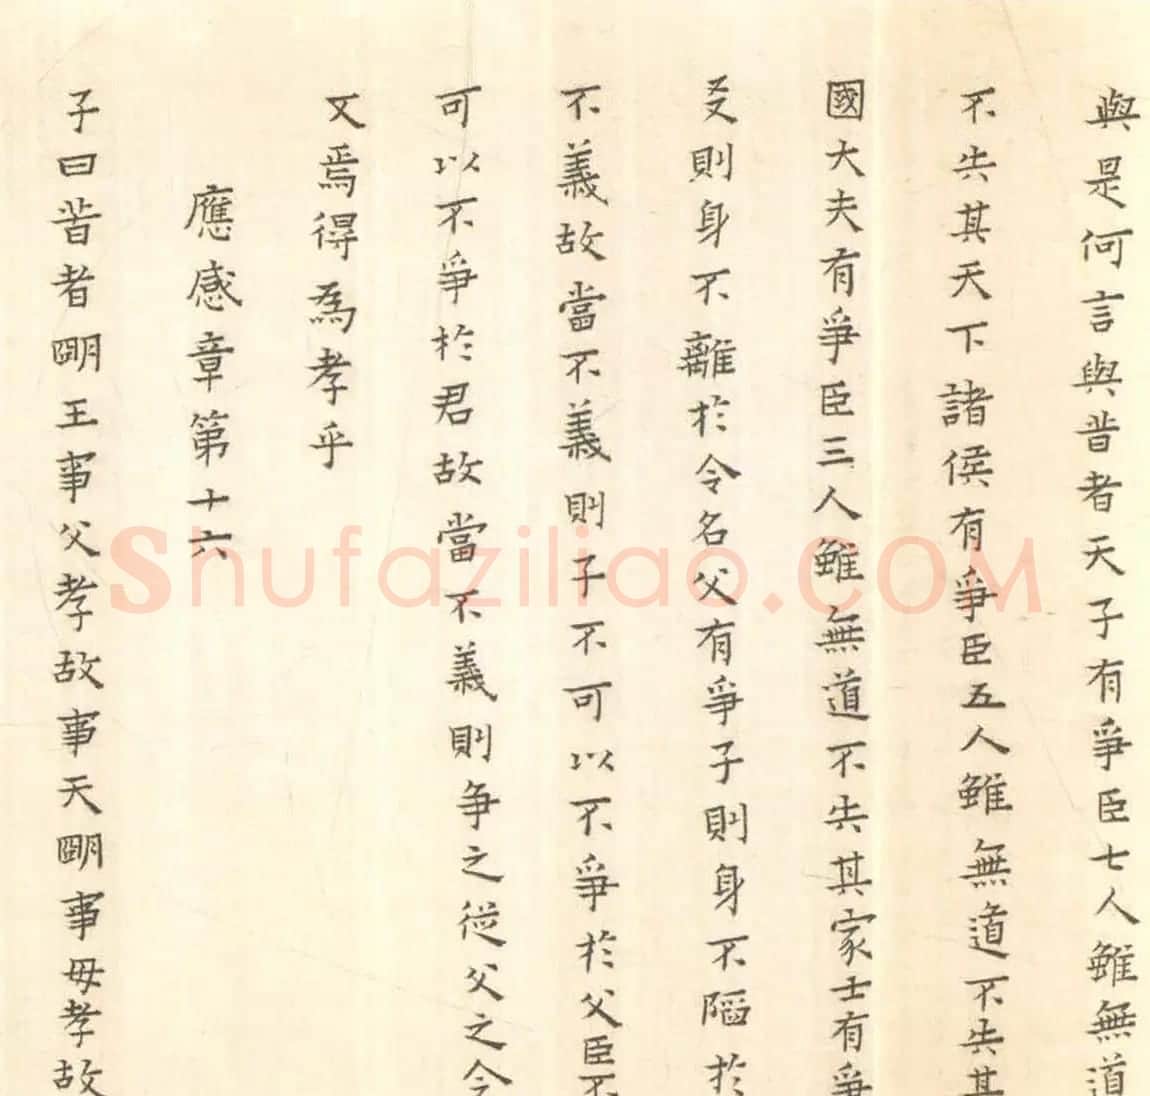 與是何言與昔者天子有爭臣七人雖無道
不失其天下諸侯有爭臣五人雖無道不失其
國大夫有爭臣三人雖無道不失其家士有爭
友則身不離於令名父有爭子則身不陷於
不義故當不義則子不可以不爭於父臣不
可以不爭於君故當不義則争之從父之令
又焉得為孝乎
應感章第十六
子曰昔者朙王事父孝故事天朙事母孝故
shufaziliao.com